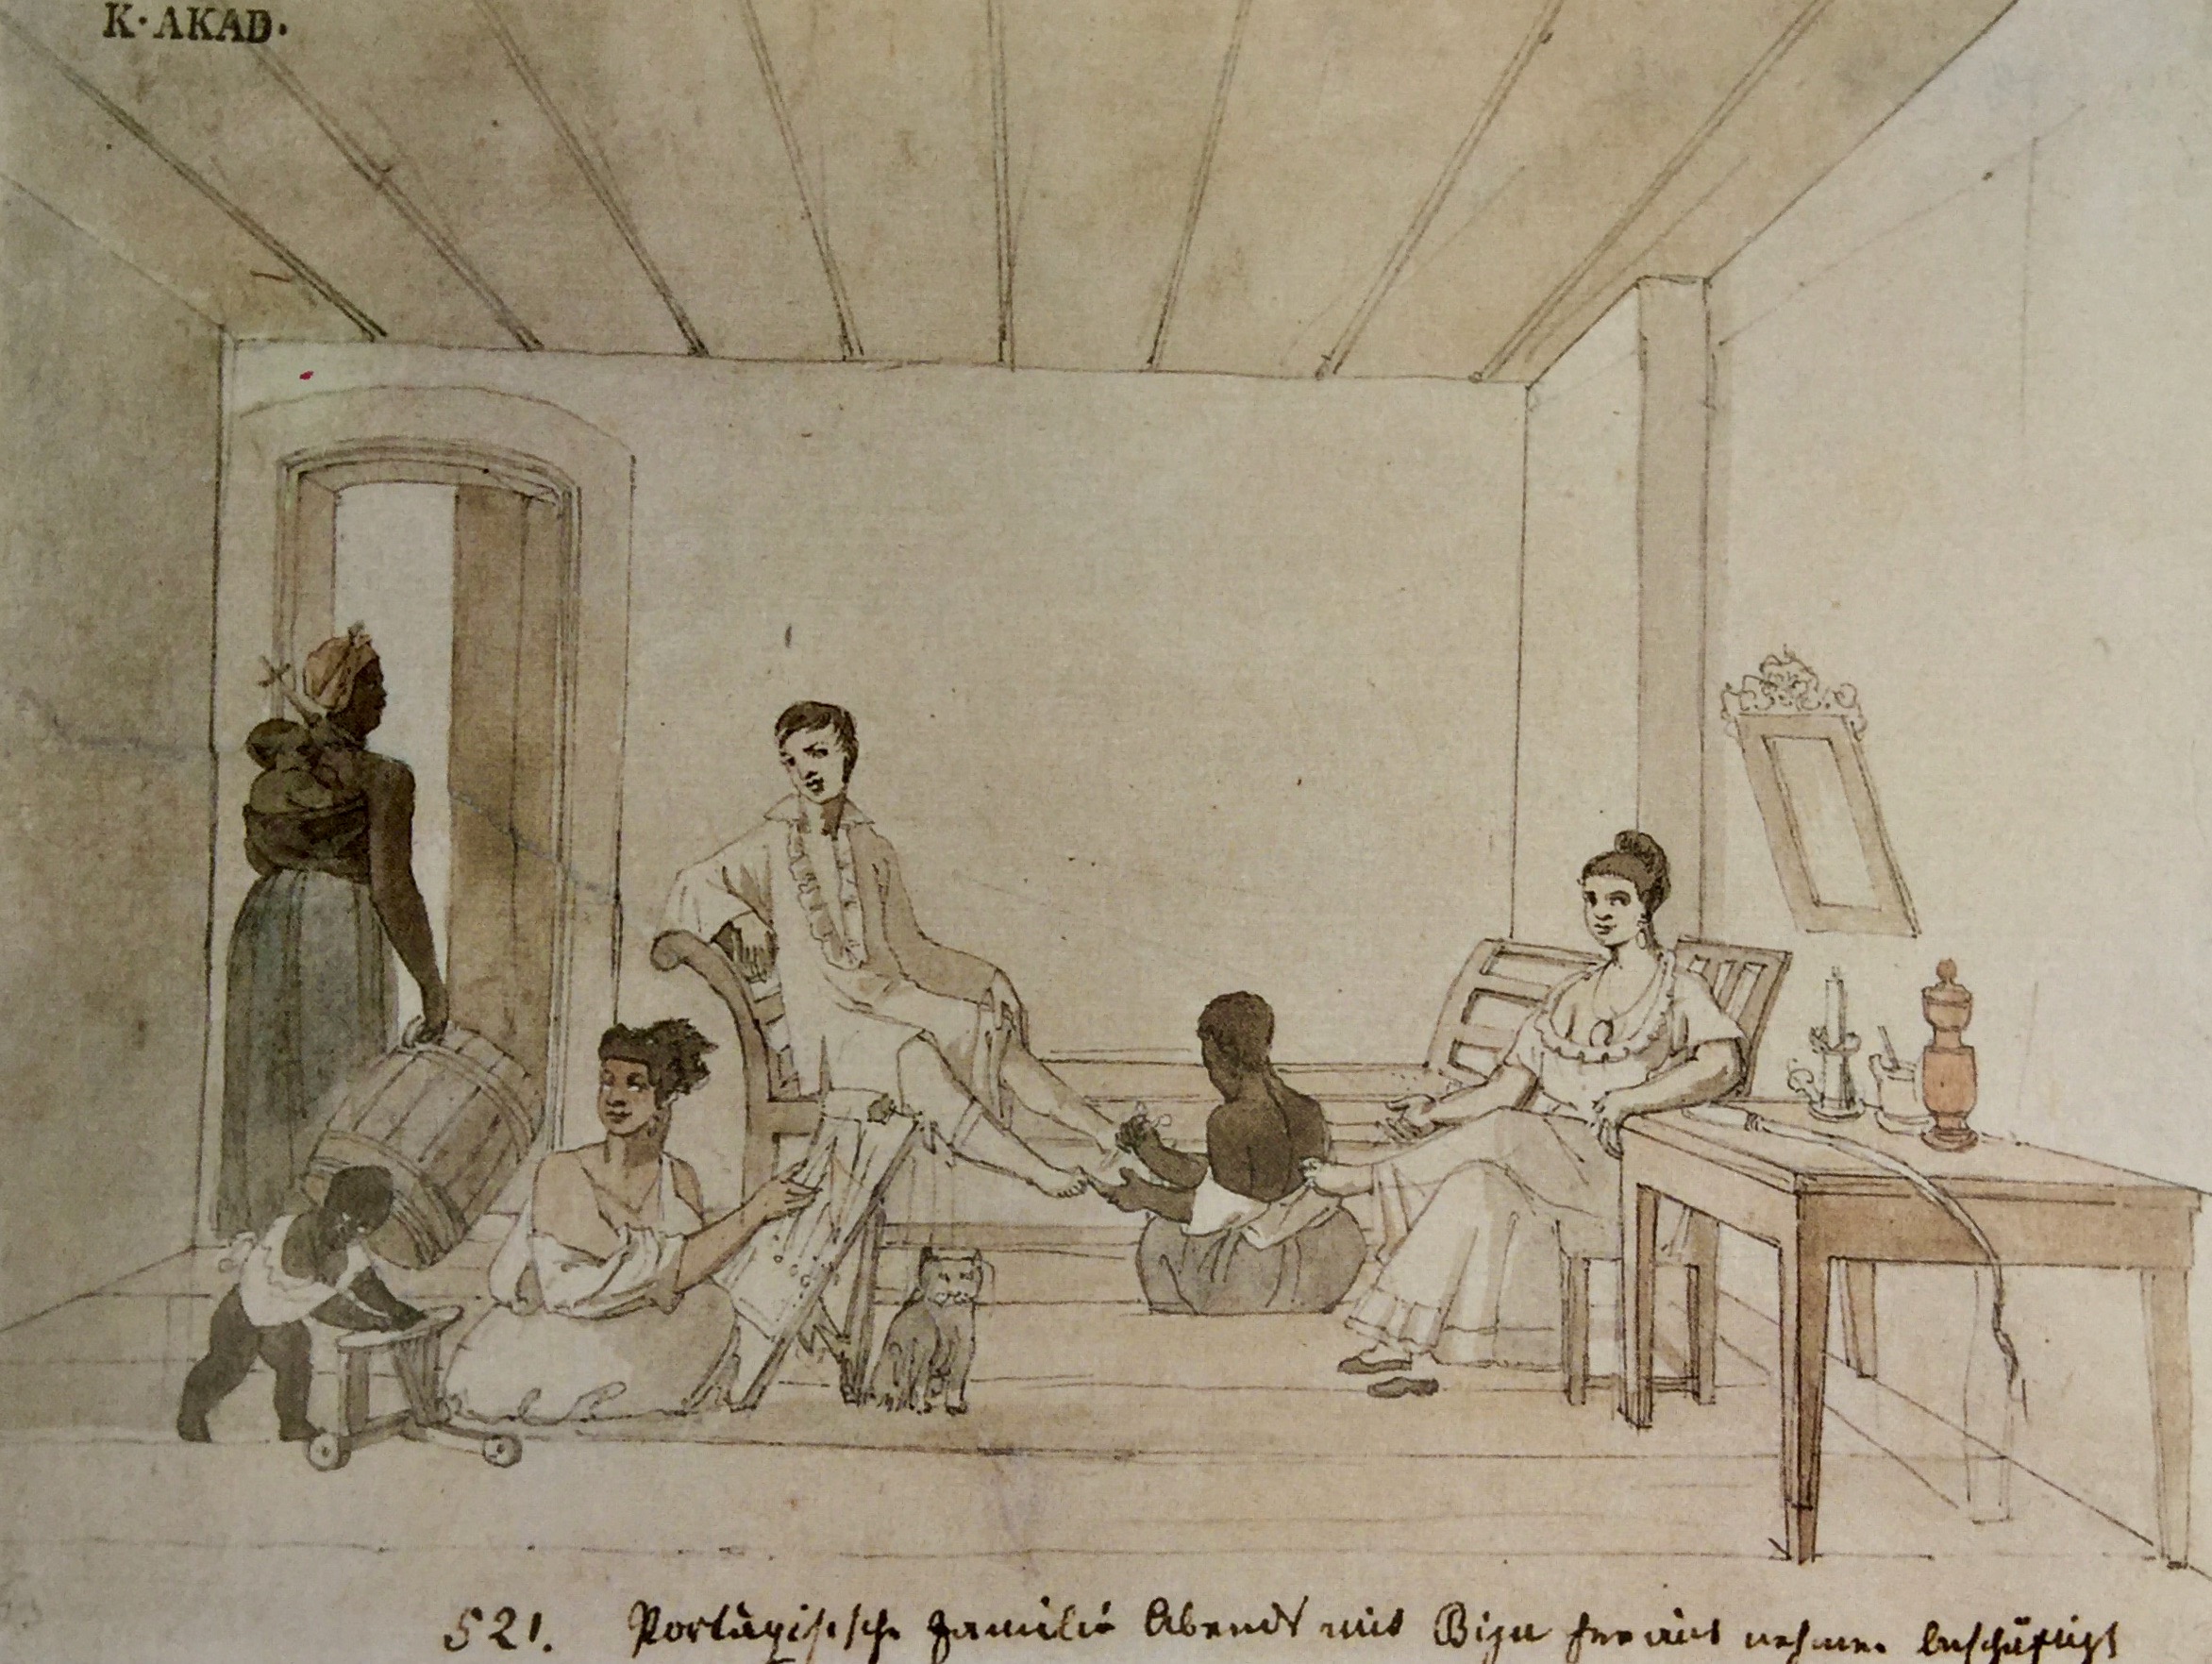 K·AKAD.
521. Portugisische Familie Abends mit Bizu heraus nehmen beschäftigt